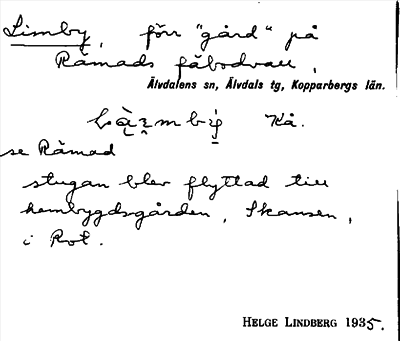 Limby, förr "gård" på
Råmads fäbodvall,
Älvdalens sn, Älvdals tg, Kopparbergs län.
Kå.
se Råmad
stugan blev flyttad till
hembygdsgården, Skansen,
i Rot.
HELGE LINDBERG 1935.